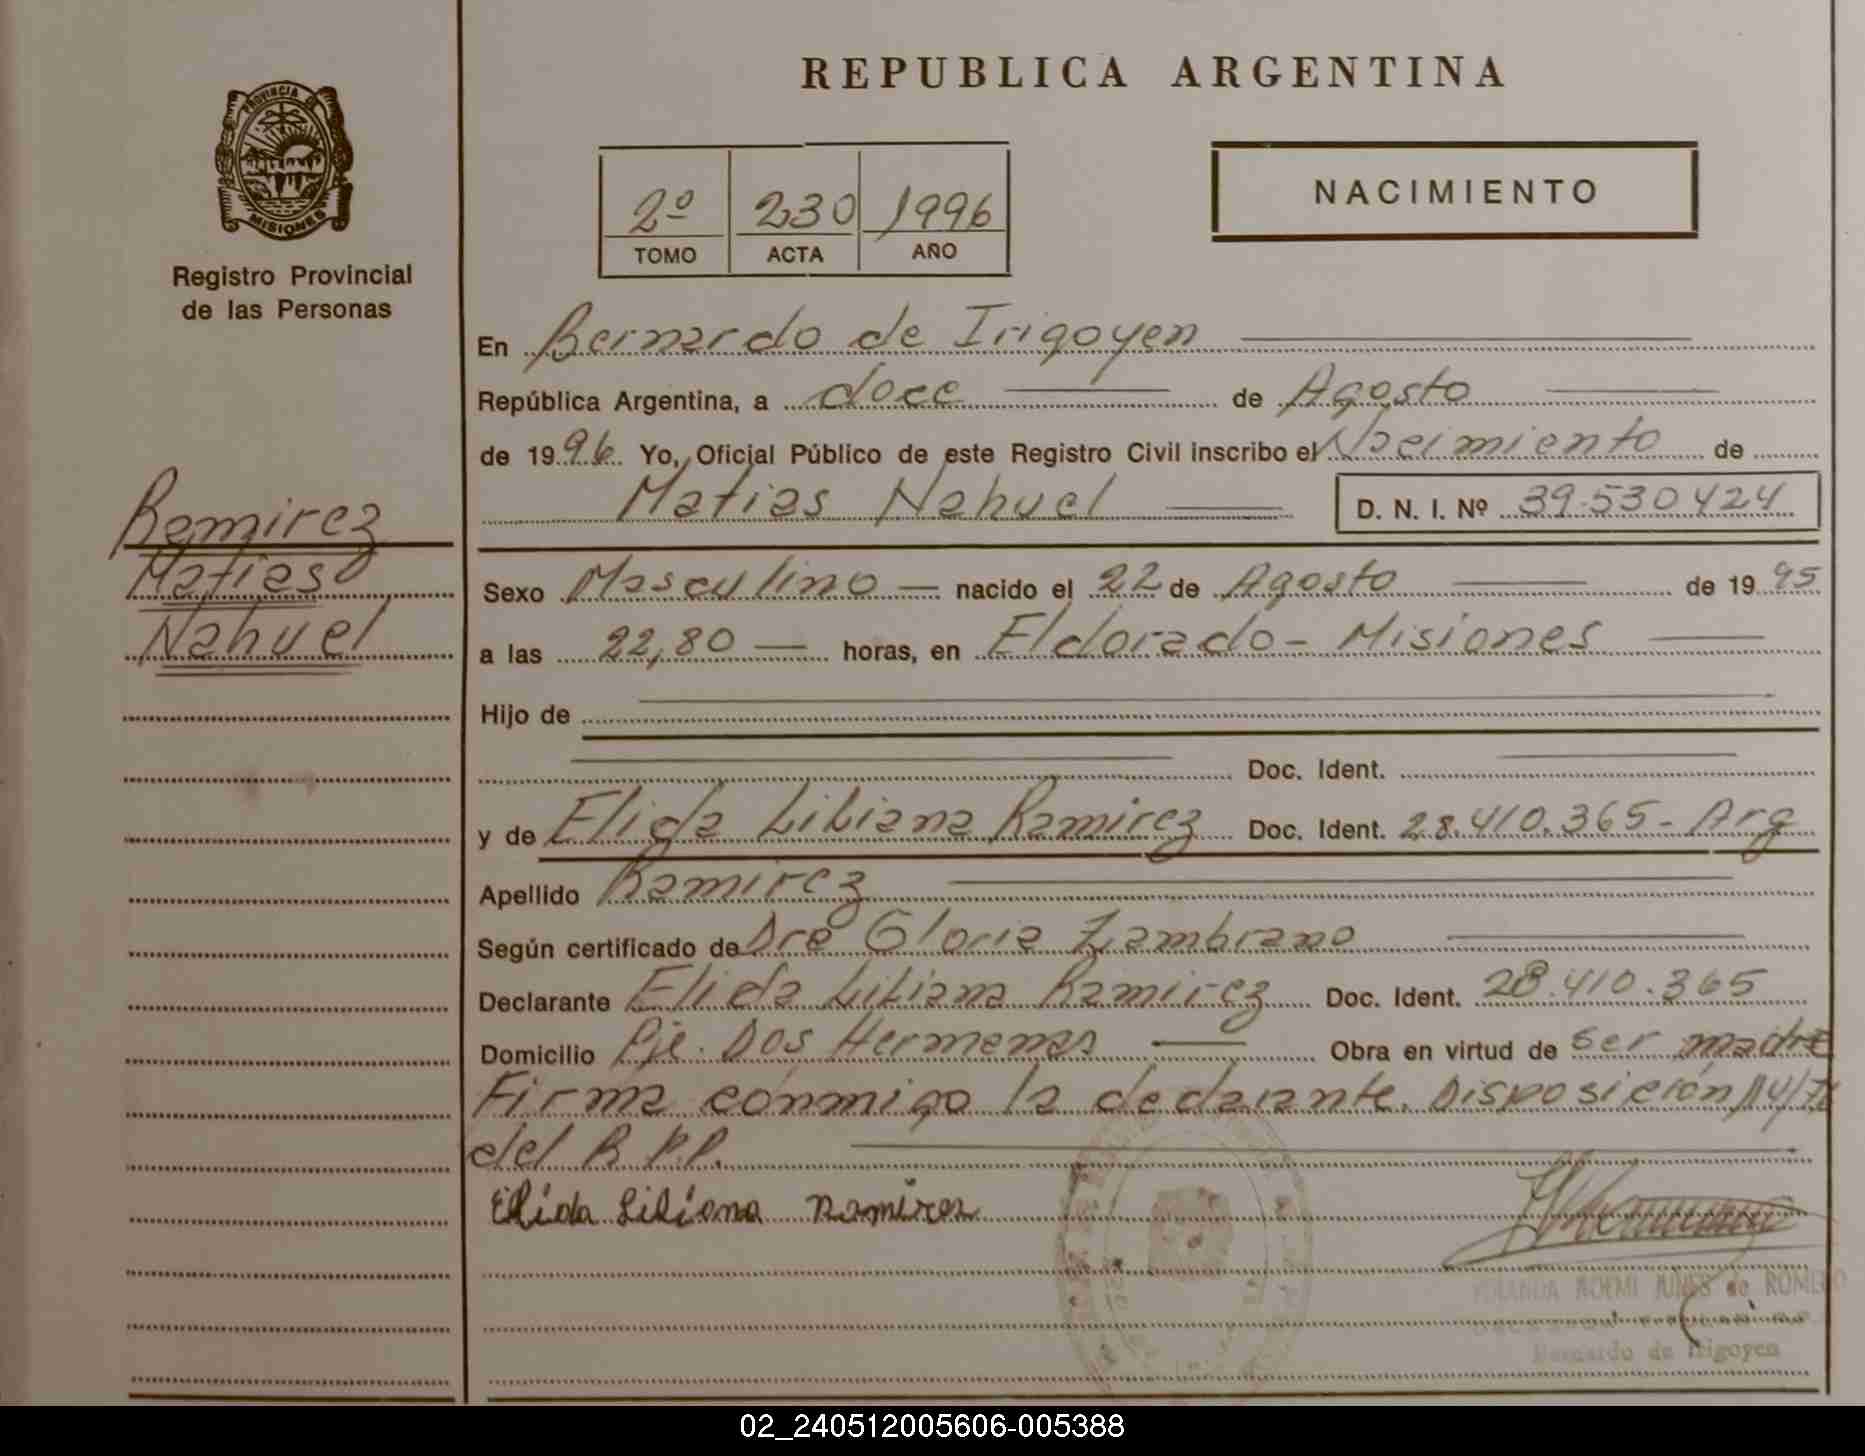 REPUBLICA ARGENTINA
PROVINCIA DE
MISIONES
Registro Provincial
de las Personas
2º 230 1996
TOMO ACTA AÑO
NACIMIENTO
En Bernardo de Irigoyen
República Argentina, a doce de Agosto
de 1996 Yo, Oficial Público de este Registro Civil inscribo el Nacimiento de
Matias Nahuel D. N. I. Nº 39.530424
Ramirez
Matias
Nahuel
Sexo Masculino nacido el 22 de Agosto de 1995
a las 22,80 horas, en Eldorado - Misiones
Hijo de
Doc. Ident.
y de Elida Liliana Ramirez Doc. Ident. 28.410.365- Arg
Apellido Ramirez
Según certificado de Dra Gloria Zambrano
Declarante Elida Liliana Ramirez Doc. Ident. 28.410.365
Domicilio Pje. Dos Hermanas Obra en virtud de ser madre
Firma conmigo la declarante. Disposición
del R.P.P.
Elida Liliana Ramirez
NOEMI de ROMERO
Bernardo de Irigoyen
02_240512005606-005388